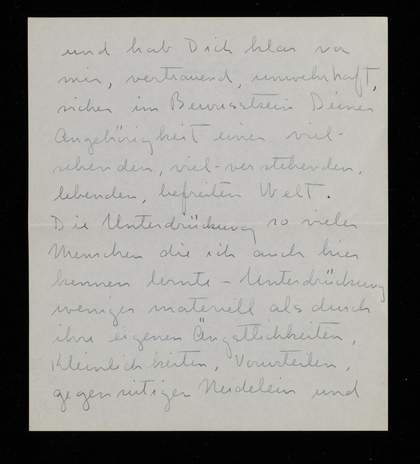 und hab Dich klar vor
mir, vertrauend, unwehrhaft,
sicher im Bewusstsein Deiner
Angehörigkeit einer viel-
sehenden, viel-verstehenden,
lebenden, befreiten Welt.
Die Unterdrückung so vieler
Menschen die ich auch hier
kennen lernte – Unterdrückung
weniger materiell als durch
ihre eigenen Ängstlichkeiten,
Kleinlichkeiten, Vorurteilen,
gegenseitigen und